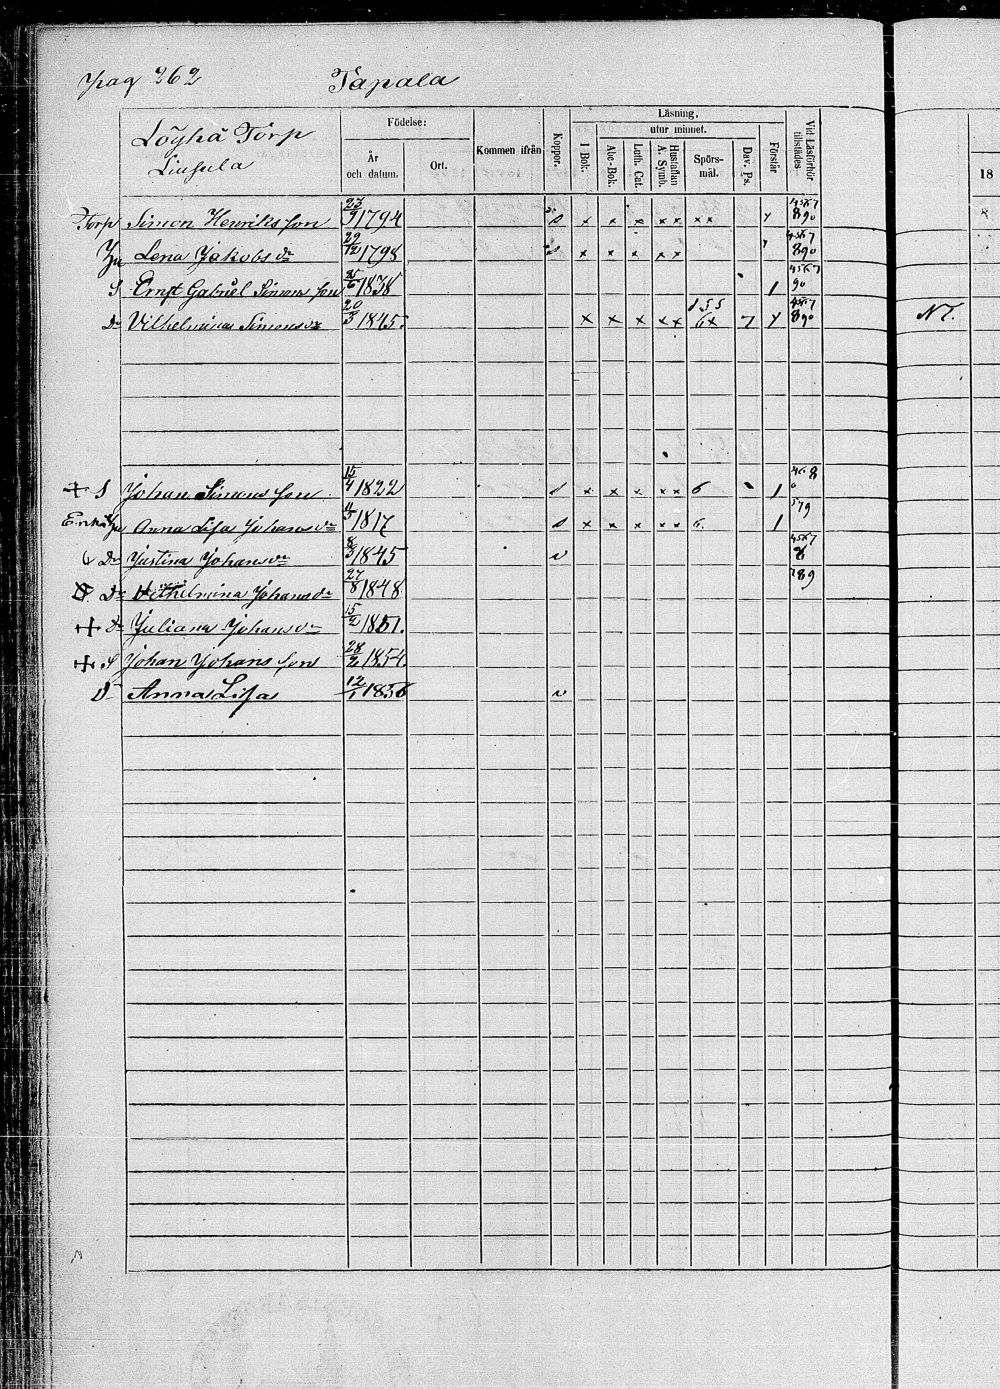 pag 262 Tapala
Löyhä Torp
Födelse:
År och datum.
Ort.
Kommen ifrån
Koppor.
Läsning,
I Bok.
utur minnet.
Abc-Bok.
Luth. Cat.
Hustaflan A. Symb.
Spörs-mål.
Dav. Ps.
Förstår
Vid Läsförhör tillstädes
18
Torp Simon Henriks son 23/9 1794 s x x x x x x x x 4567 890
Hu Lena Jakobs dr 29/12 1798 s x x x x x 4567 890
S Ernst Gabriel Simons son 1838 4567 90
Dr Vilhelmina Simons dr 20/3 1845. x x x x x 6x 7 4567 890 NT.
+ S Johan Simons son 15/4 1822 s x x x x x 6
Anna Lisa Johans dr 1817 s x x x x x 6.
Dr Justina Johans dr 8/3 1845 v 4567 8
Dr Vilhelmina Johans dr 27/8 1848 789
+ Dr Juliana Johans dr 15/2 1851.
+ S Johan Johans son 28/2 1854
Dr Anna Lisa 12/1 1856 v